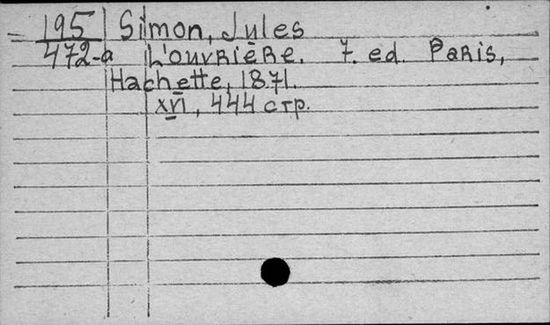 195 Simon, Jules
472-a L'ouvrière. 7. ed. Paris,
Hachette, 1871.
XVI, 444 стр.